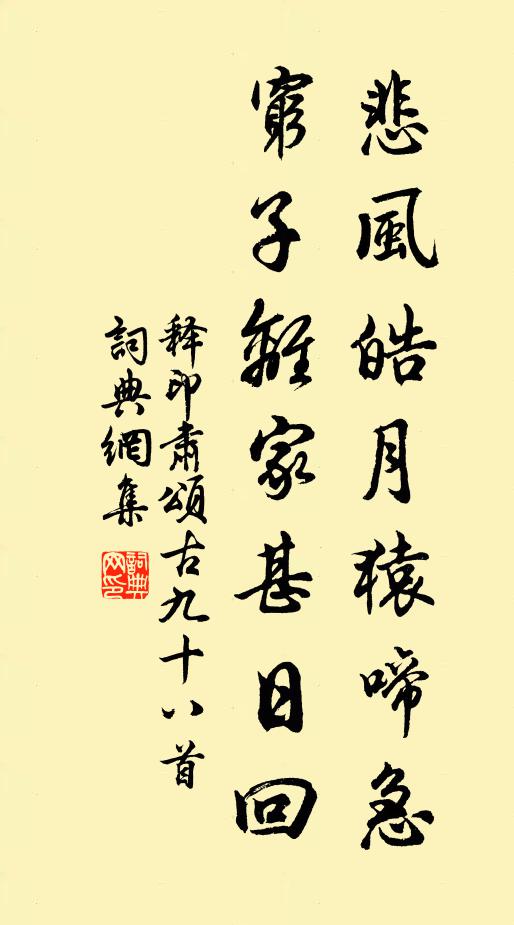 悲風皓月猿啼急
窮子離家甚日回
释印肅頌古九十八首
詞典網集
詞典網印